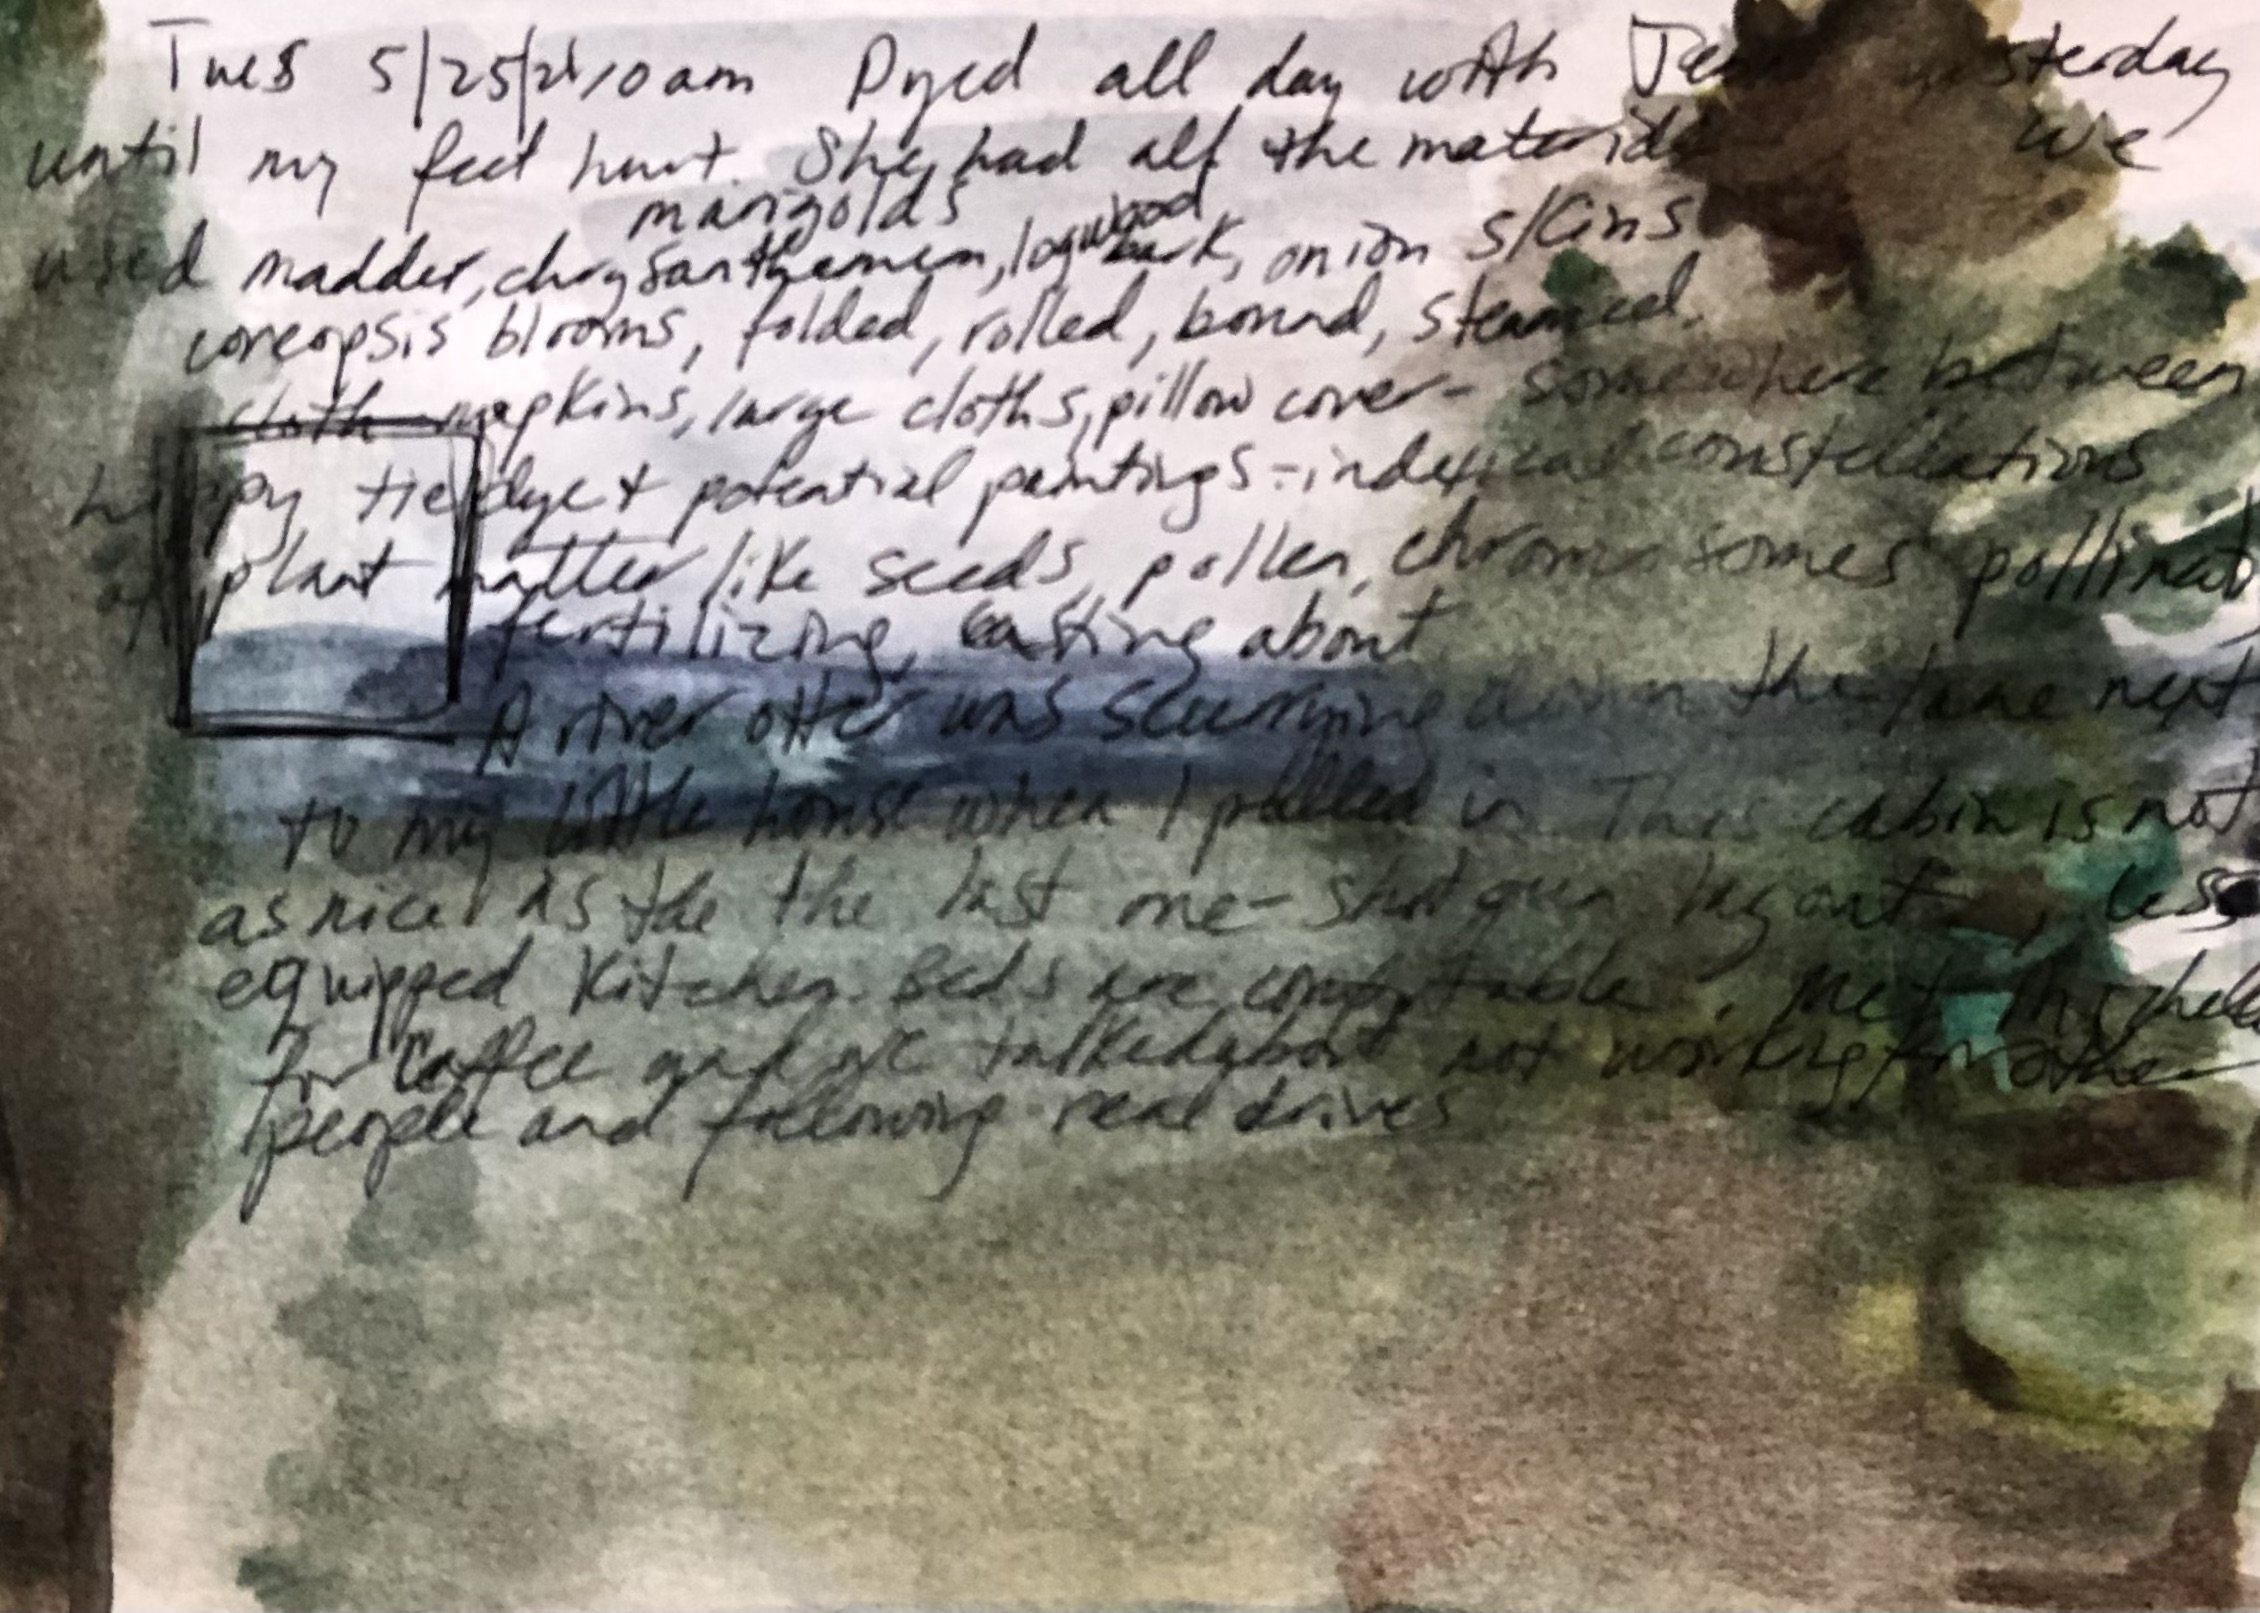 Tues 5/25/21 10am Dyed all day with yesterday
until my feet hurt. She had all the materials We
marigolds
used madder, chrysanthemem, logwood bark, onion skins
coreopsis blooms, folded, rolled, bound, steamed,
cloth napkins, large cloths, pillow cover - somewhere between
hippy tie dye & potential paintings - indexical constellations
of plant matter like seeds, pollen, chromosomes
fertilizing, casting about
A river otter was scurrying down the lane next
to my little house when I pulled in. This cabin is not
as nice as the the last one - shotgun layout, less
equipped kitchen. Beds are comfortable. Met
for coffee and we talked about not working for other
people and following real drives